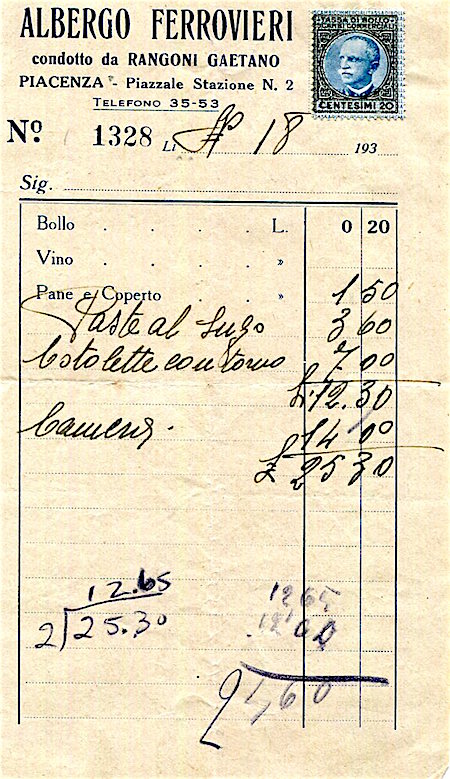 ALBERGO FERROVIERI
condotto da RANGONI GAETANO
PIACENZA - Piazzale Stazione N. 2
TELEFONO 35-53
TASSA DI BOLLO
SCAMBI COMMERCIALI
CENTESIMI 20
Nº 1328 LI 18 193
Sig.
Bollo . . . . L. 0 20
Vino . . . . »
Pane e Coperto . . » 1 50
Paste al sugo 3 60
Cotolette contorno 7 00
L. 12.30
Camera. 14 00
£ 25 30
12.65
2 25.30
12 65
12 00